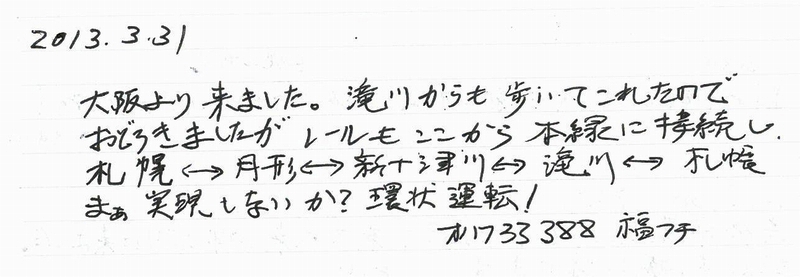 2013.3.31
大阪より来ました。滝川からも歩いてこれたので
おどろきましたが レールもここから本線に接続し、
札幌↔月形↔新十津川↔滝川↔札幌
まぁ実現しないか?環状運転!
733388 福フチ